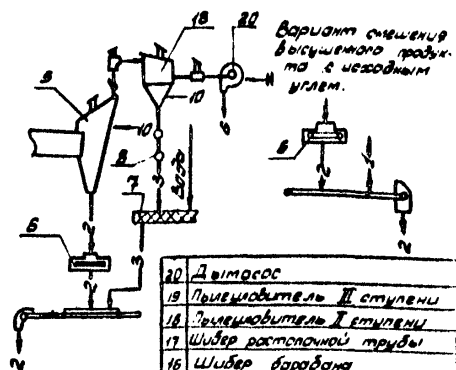 18
20
Вариант смешения
высушенного продук-
та с исходным
углем.
9
10
10
8
6
8
Вода
7
3
6
2
1
6
2
3
2
2
2
20 Дымосос
19 Пылеуловитель II ступени
18 Пылеуловитель I ступени
17 Шибер растопочной трубы
16 Шибер барабана